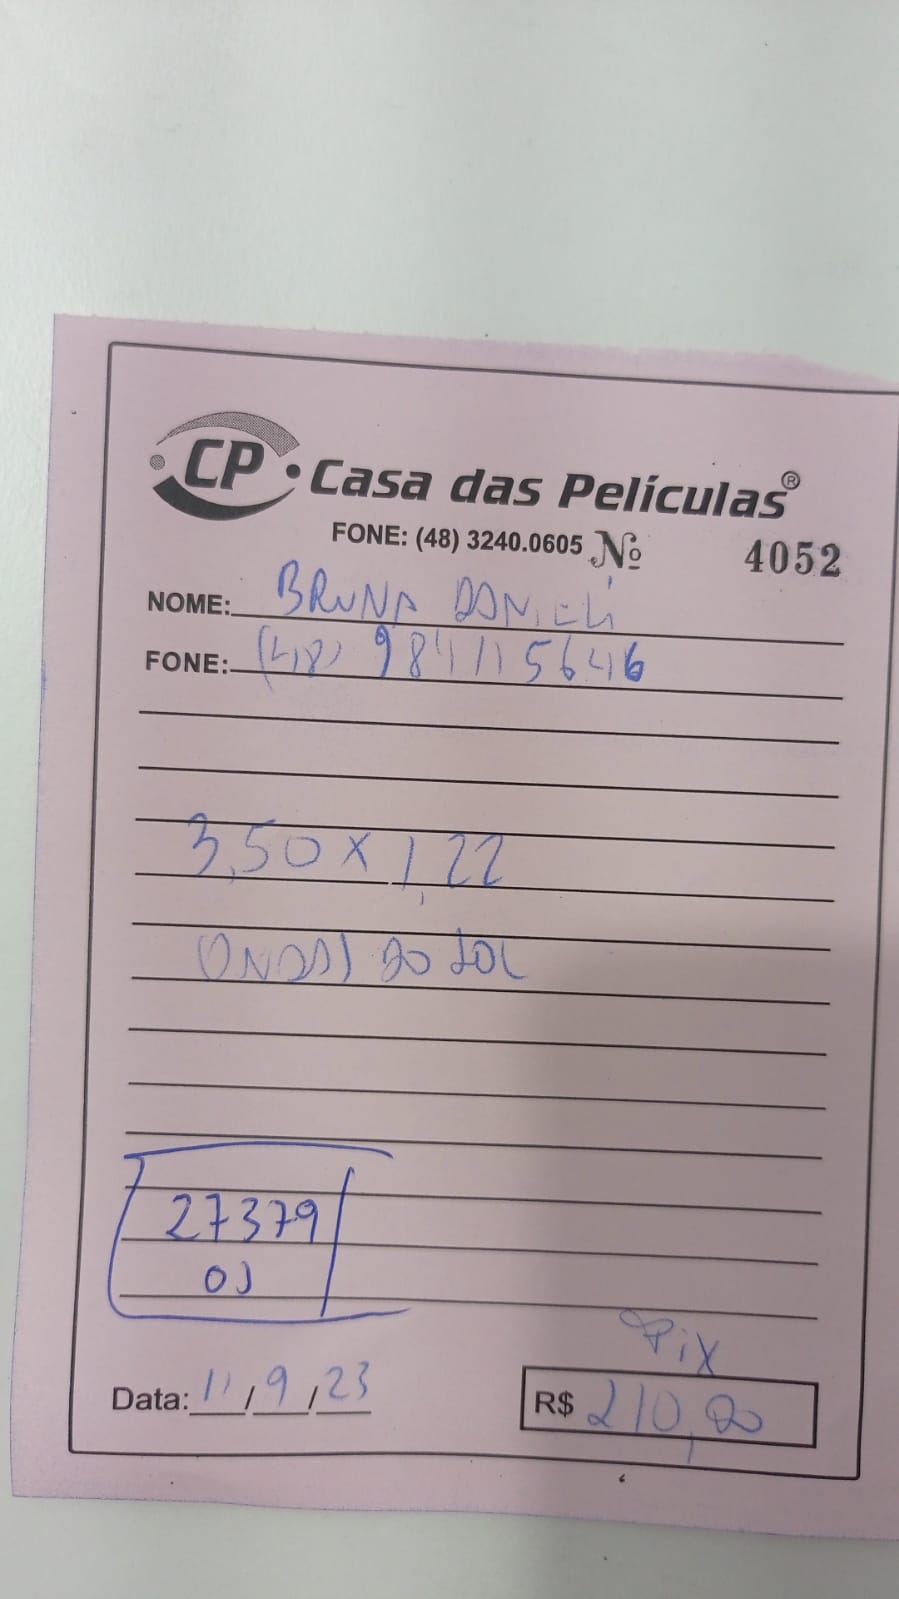 CP Casa das Películas®
FONE: (48) 3240.0605 Nº 4052
NOME: BRUNA DANIELI
FONE: (48) 984115646
3,50 x 1,22
ONDAS DO SOL
27379
OS
Pix
Data: 11/9/23 R$ 210,00